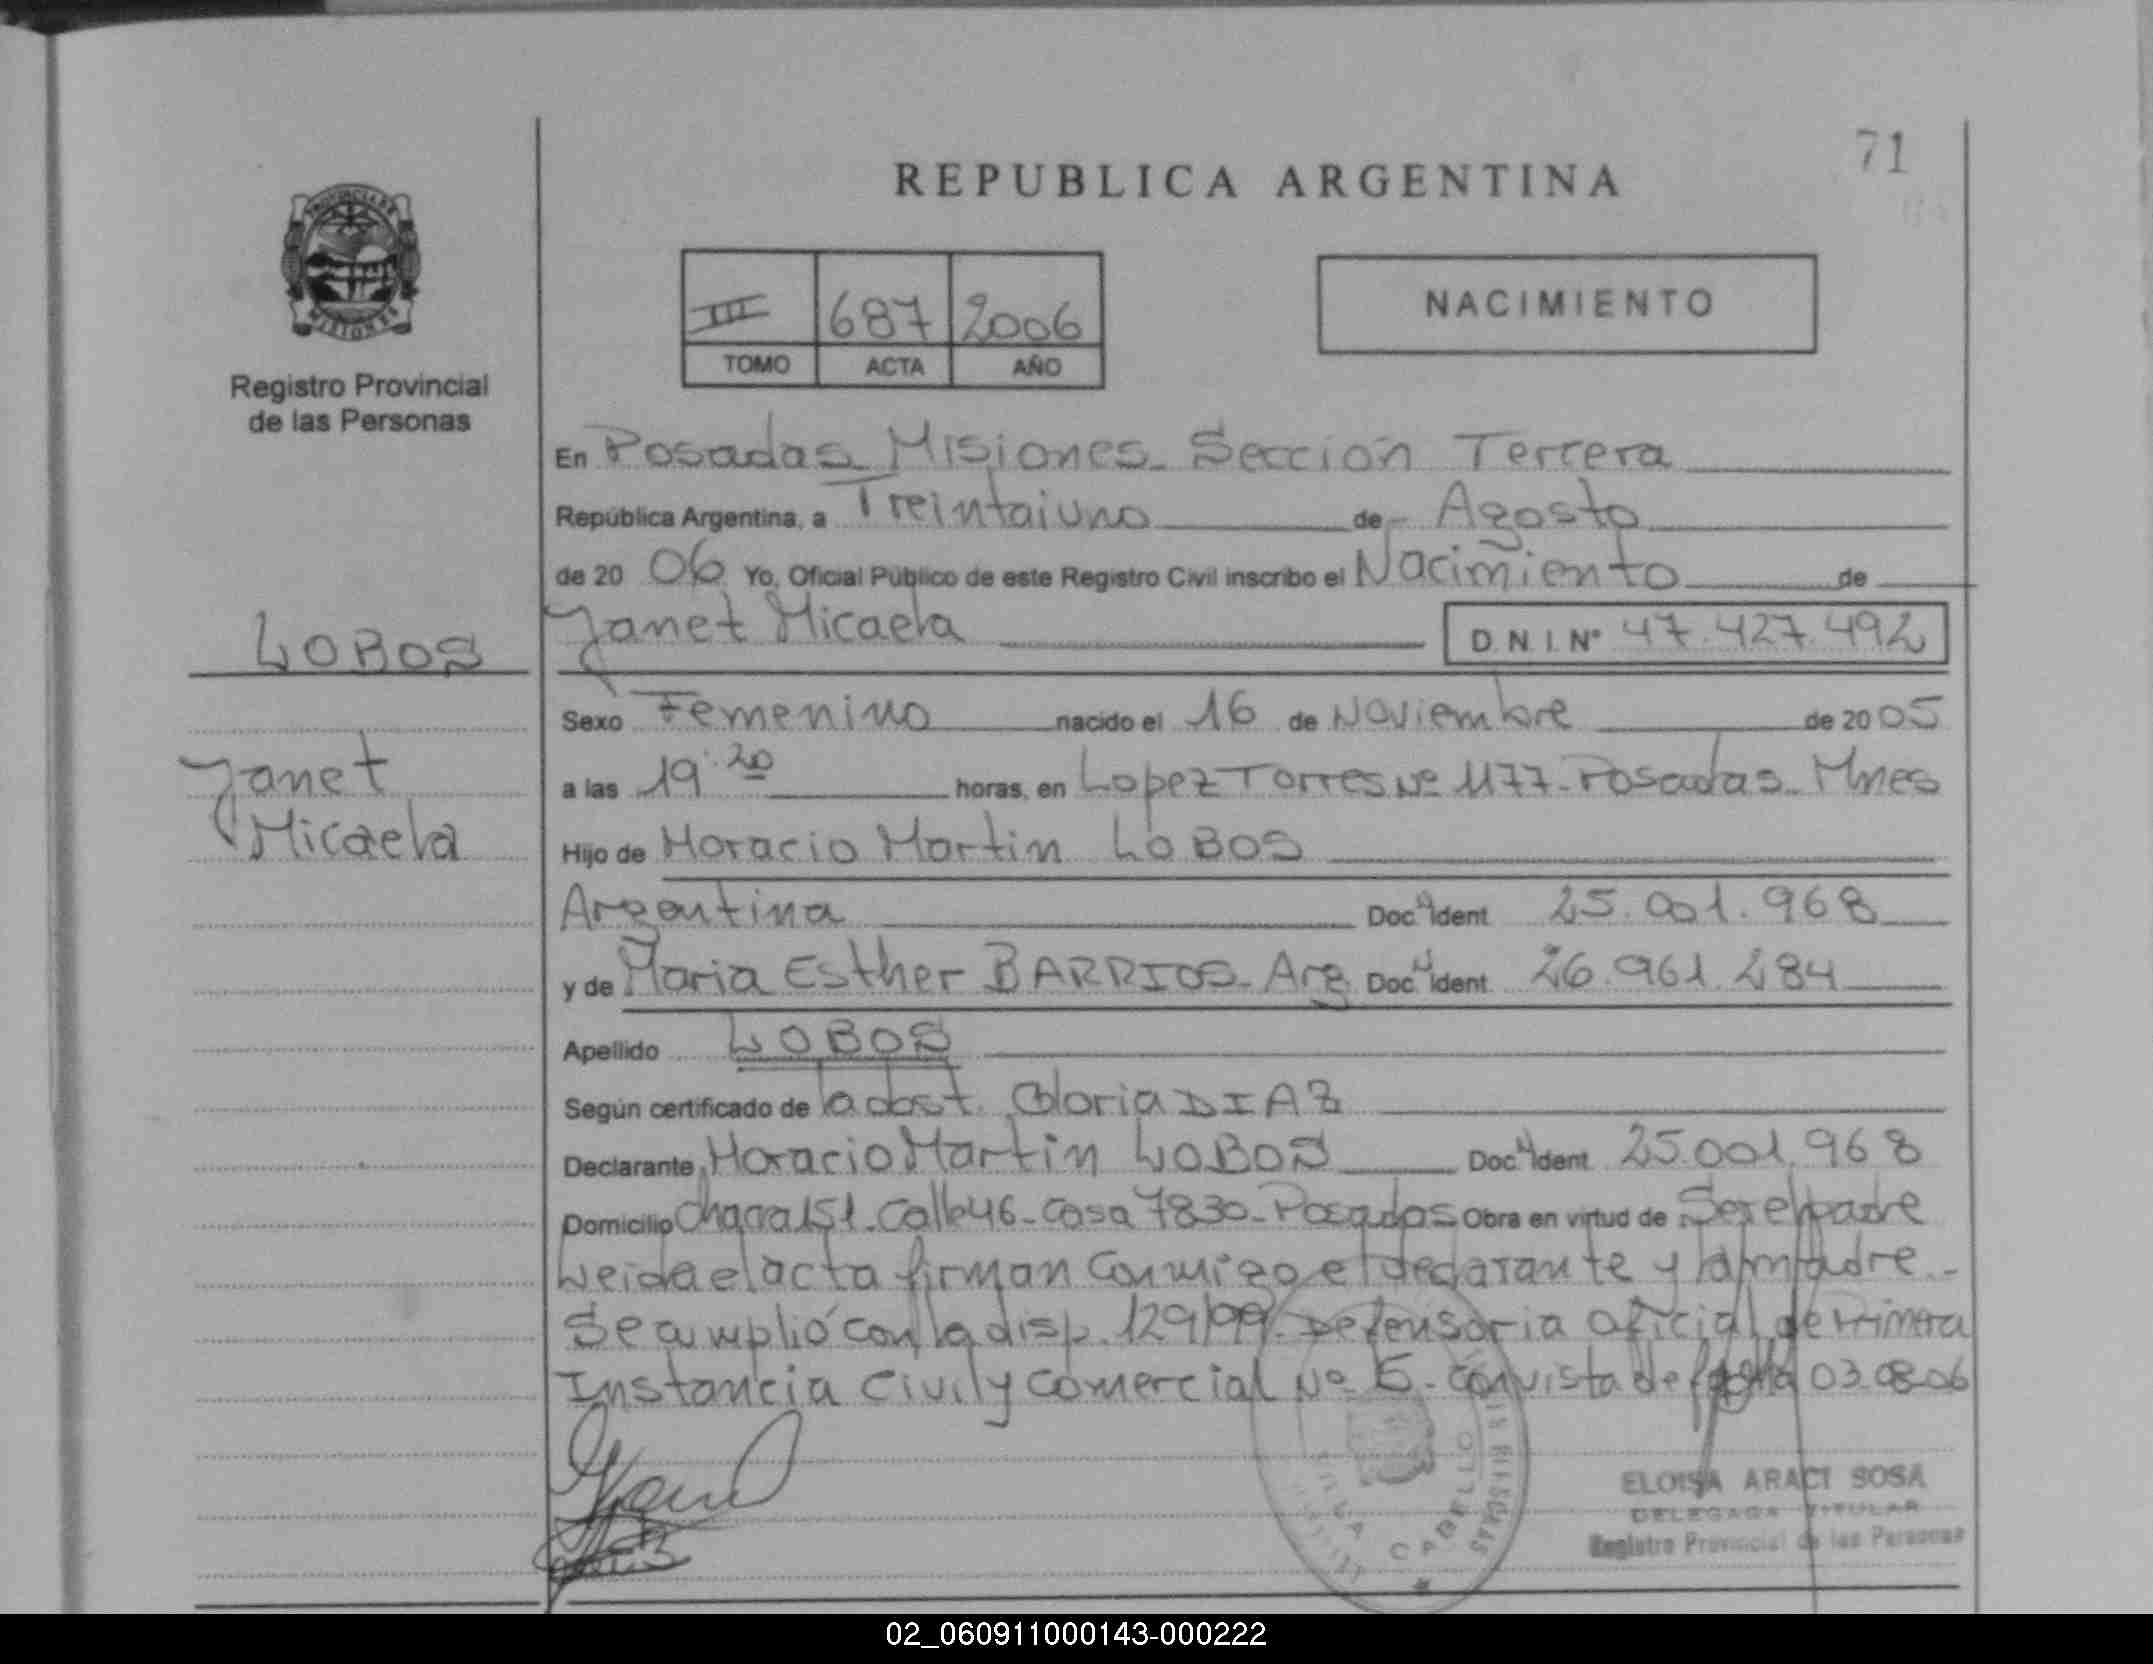 71
REPUBLICA ARGENTINA
PROVINCIA DE
MISIONES
Registro Provincial
de las Personas
III 687 2006
TOMO ACTA AÑO
NACIMIENTO
En Posadas Misiones Sección Tercera
República Argentina, a Treintaiuno de Agosto
de 20 06 Yo, Oficial Público de este Registro Civil inscribo el Nacimiento de
LOBOS
Janet Micaela D.N.I. Nº 47.427.492
Sexo Femenino nacido el 16 de Noviembre de 20 05
Janet
Micaela
a las 19:20 horas, en Lopez Torres Nº 1177-Posadas-Mnes
Hijo de Horacio Martin LOBOS
Argentina Doc. Ident 25.001.968
y de Maria Esther BARRIOS-Arg Doc. Ident 26.961.284
Apellido LOBOS
Según certificado de la obst. Gloria DIAZ
Declarante Horacio Martin LOBOS Doc. Ident 25.001.968
Domicilio Chacra 151-Calle 46-Casa 7830-Posadas Obra en virtud de Ser el padre
Leida el acta firman conmigo el declarante y la madre.-
Se cumplió con la disp. 129/99. Defensoria Oficial de Primera
Instancia Civil y Comercial Nº 5-con vista de fecha 03.08.06
ELOISA ARACI SOSA
DELEGADA TITULAR
Registro Provincial de las Personas
VILLA CABELLO
02_060911000143-000222